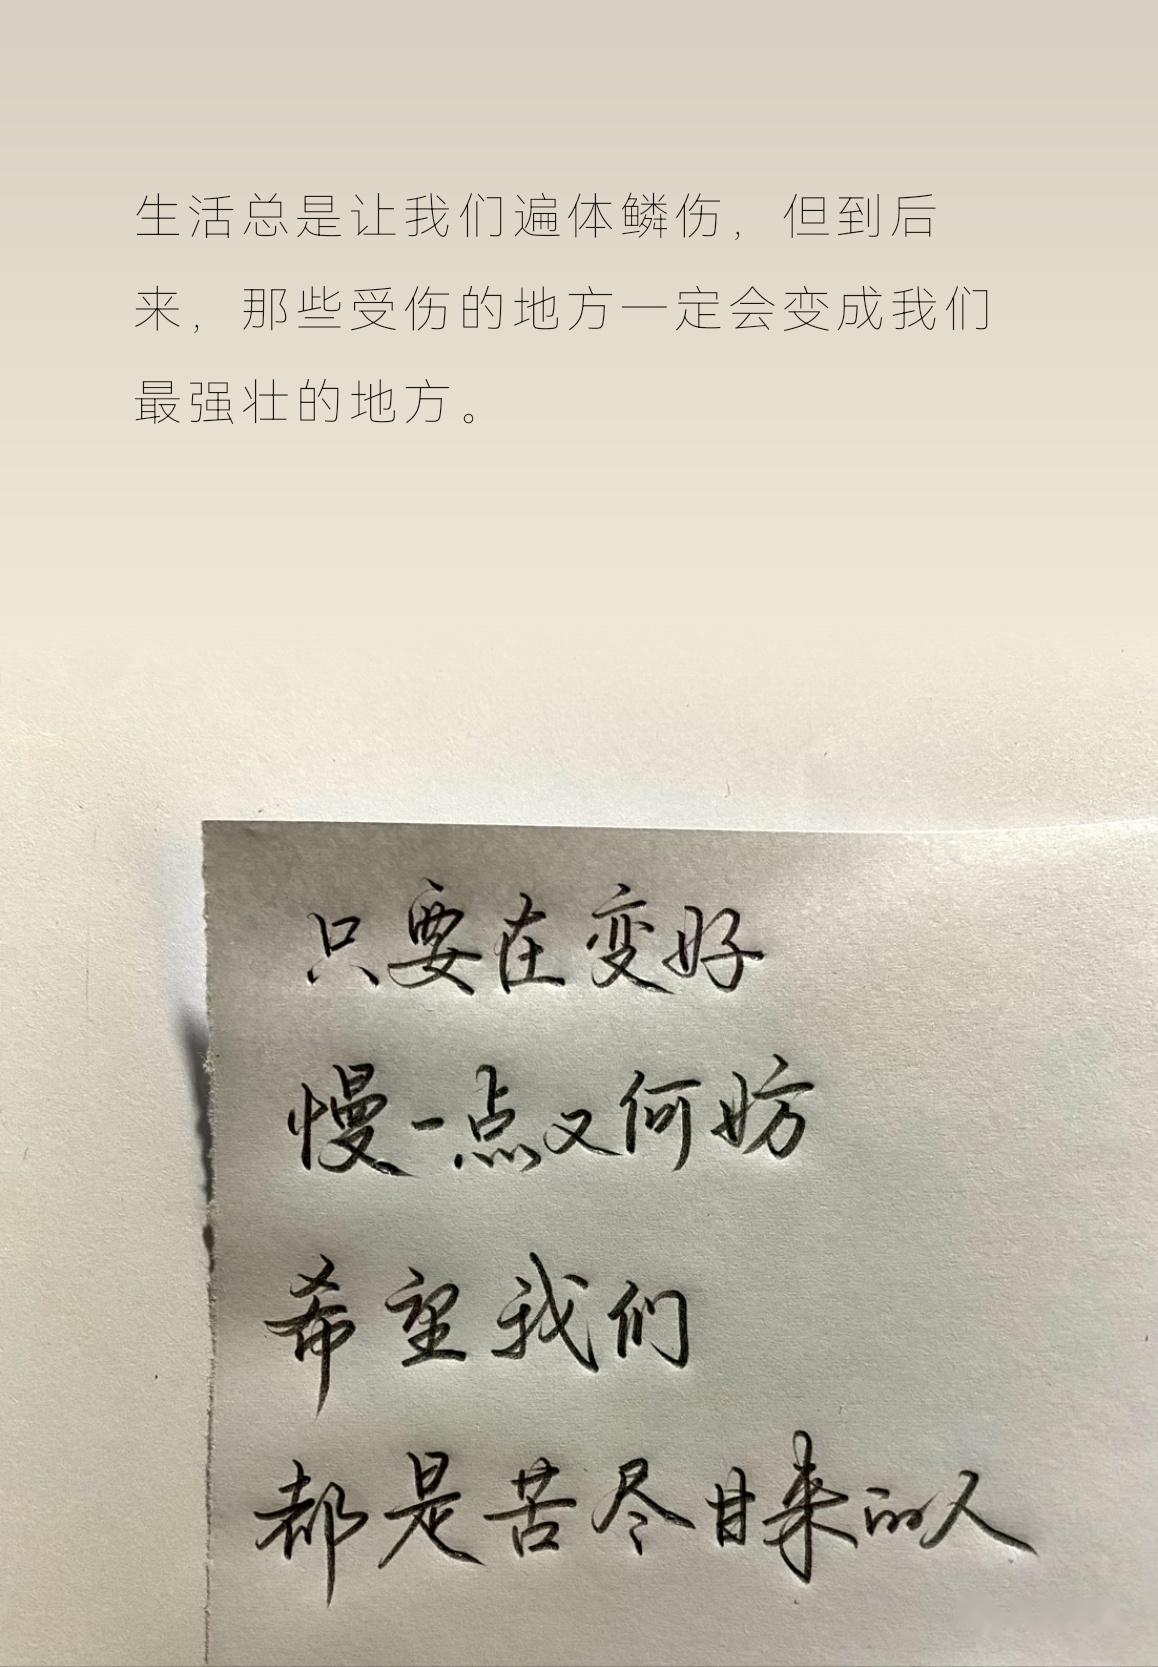 生活总是让我们遍体鳞伤，但到后
来，那些受伤的地方一定会变成我们
最强壮的地方。
只要在变好
慢一点又何妨
希望我们
都是苦尽甘来的人